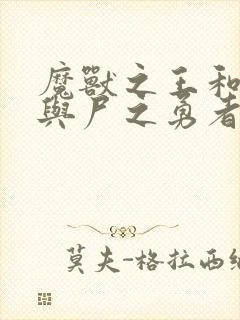 魔獸之王和
與尸之勇者
莫夫-格拉西纳